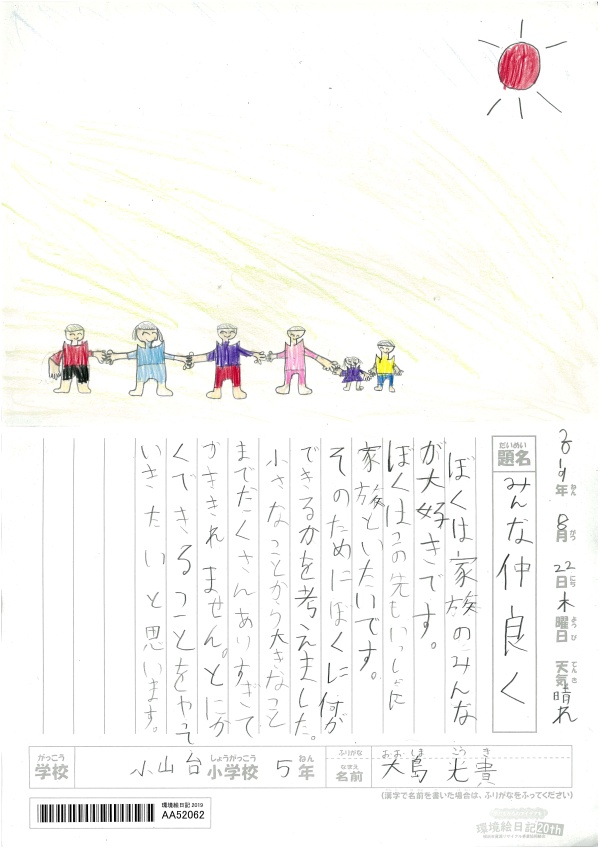 2019年 8月 22日 木曜日 天気 晴れ
ねん がつ にち ようび てんき
だいめい
題名 みんな仲良く
ぼくは家族のみんな
が大好きです。
ぼくはこの先もいっしょに
家族といたいです。
そのためにぼくに何が
できるかを考えました。
小さなことから大きなこと
までたくさんありすぎて
かききれません。とにか
くできることをやって
いきたいと思います。
がっこう しょうがっこう ねん
学校 小山台小学校 5年
ふりがな おおしま こうき
なまえ
名前 大島 光貴
(漢字で名前を書いた場合は、ふりがなをふってください)
環境絵日記2019
AA52062
環境絵日記20th